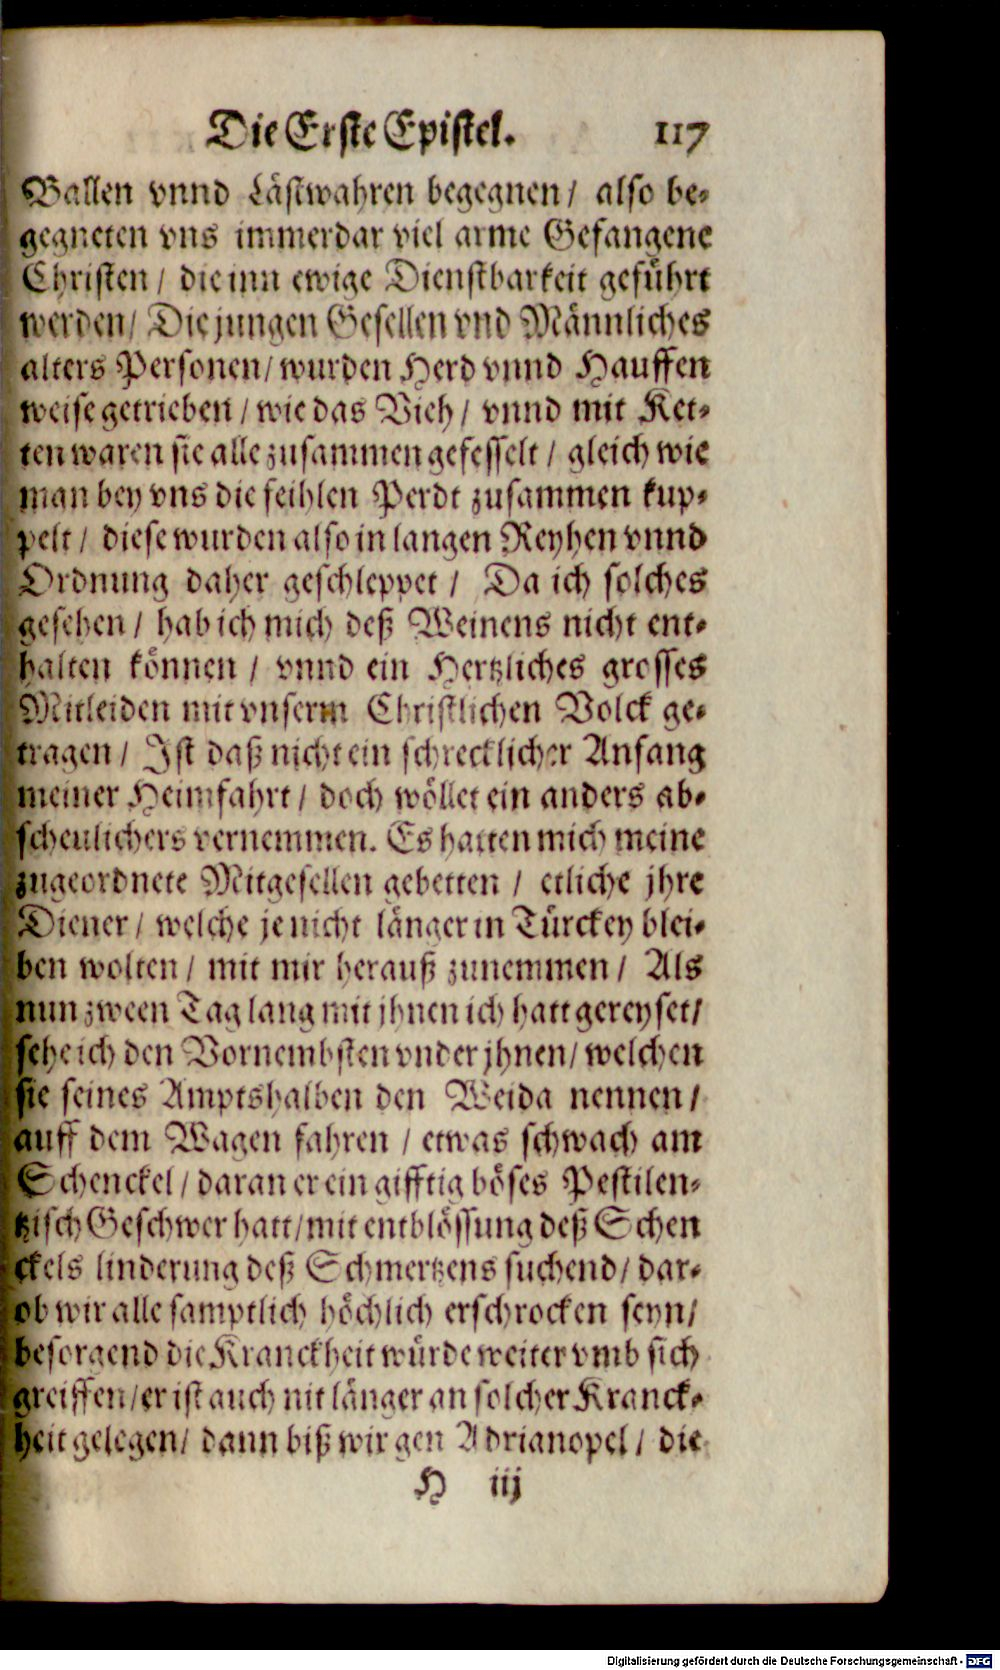 Die Erste Epistel. 117
Ballen vnnd Lästwahren begegnen / also be-
gegneten vns immerdar viel arme Gefangene
Christen / die inn ewige Dienstbarkeit geführt
werden / Die jungen Gesellen vnd Männliches
alters Personen / wurden Herd vnnd Hauffen
weise getrieben / wie das Vieh / vnnd mit Ket-
ten waren sie alle zusammen gefesselt / gleich wie
man bey vns die feihlen Perdt zusammen kup-
pelt / diese wurden also in langen Reyhen vnnd
Ordnung daher geschleppet / Da ich solches
gesehen / hab ich mich deß Weinens nicht ent-
halten können / vnnd ein Hertzliches grosses
Mitleiden mit vnserm Christlichen Volck ge-
tragen / Ist daß nicht ein schrecklicher Anfang
meiner Heimfahrt / doch wöllet ein anders ab-
scheulichers vernemmen. Es hatten mich meine
zugeordnete Mitgesellen gebetten / etliche jhre
Diener / welche je nicht länger in Türckey blei-
ben wolten / mit mir herauß zunemmen / Als
nun zween Tag lang mit jhnen ich hatt gereyset /
sehe ich den Vornembsten vnder jhnen / welchen
sie seines Amptshalben den Weida nennen /
auff dem Wagen fahren / etwas schwach am
Schenckel / daran er ein gifftig böses Pestilen-
tzisch Geschwer hatt / mit entblössung deß Schen
ckels linderung deß Schmertzens suchend / dar-
ob wir alle samptlich höchlich erschrocken seyn /
besorgend die Kranckheit würde weiter vmb sich
greiffen / er ist auch nit länger an solcher Kranck-
heit gelegen / dann biß wir gen Adrianopel / die
H iij
Digitalisierung gefördert durch die Deutsche Forschungsgemeinschaft - DFG